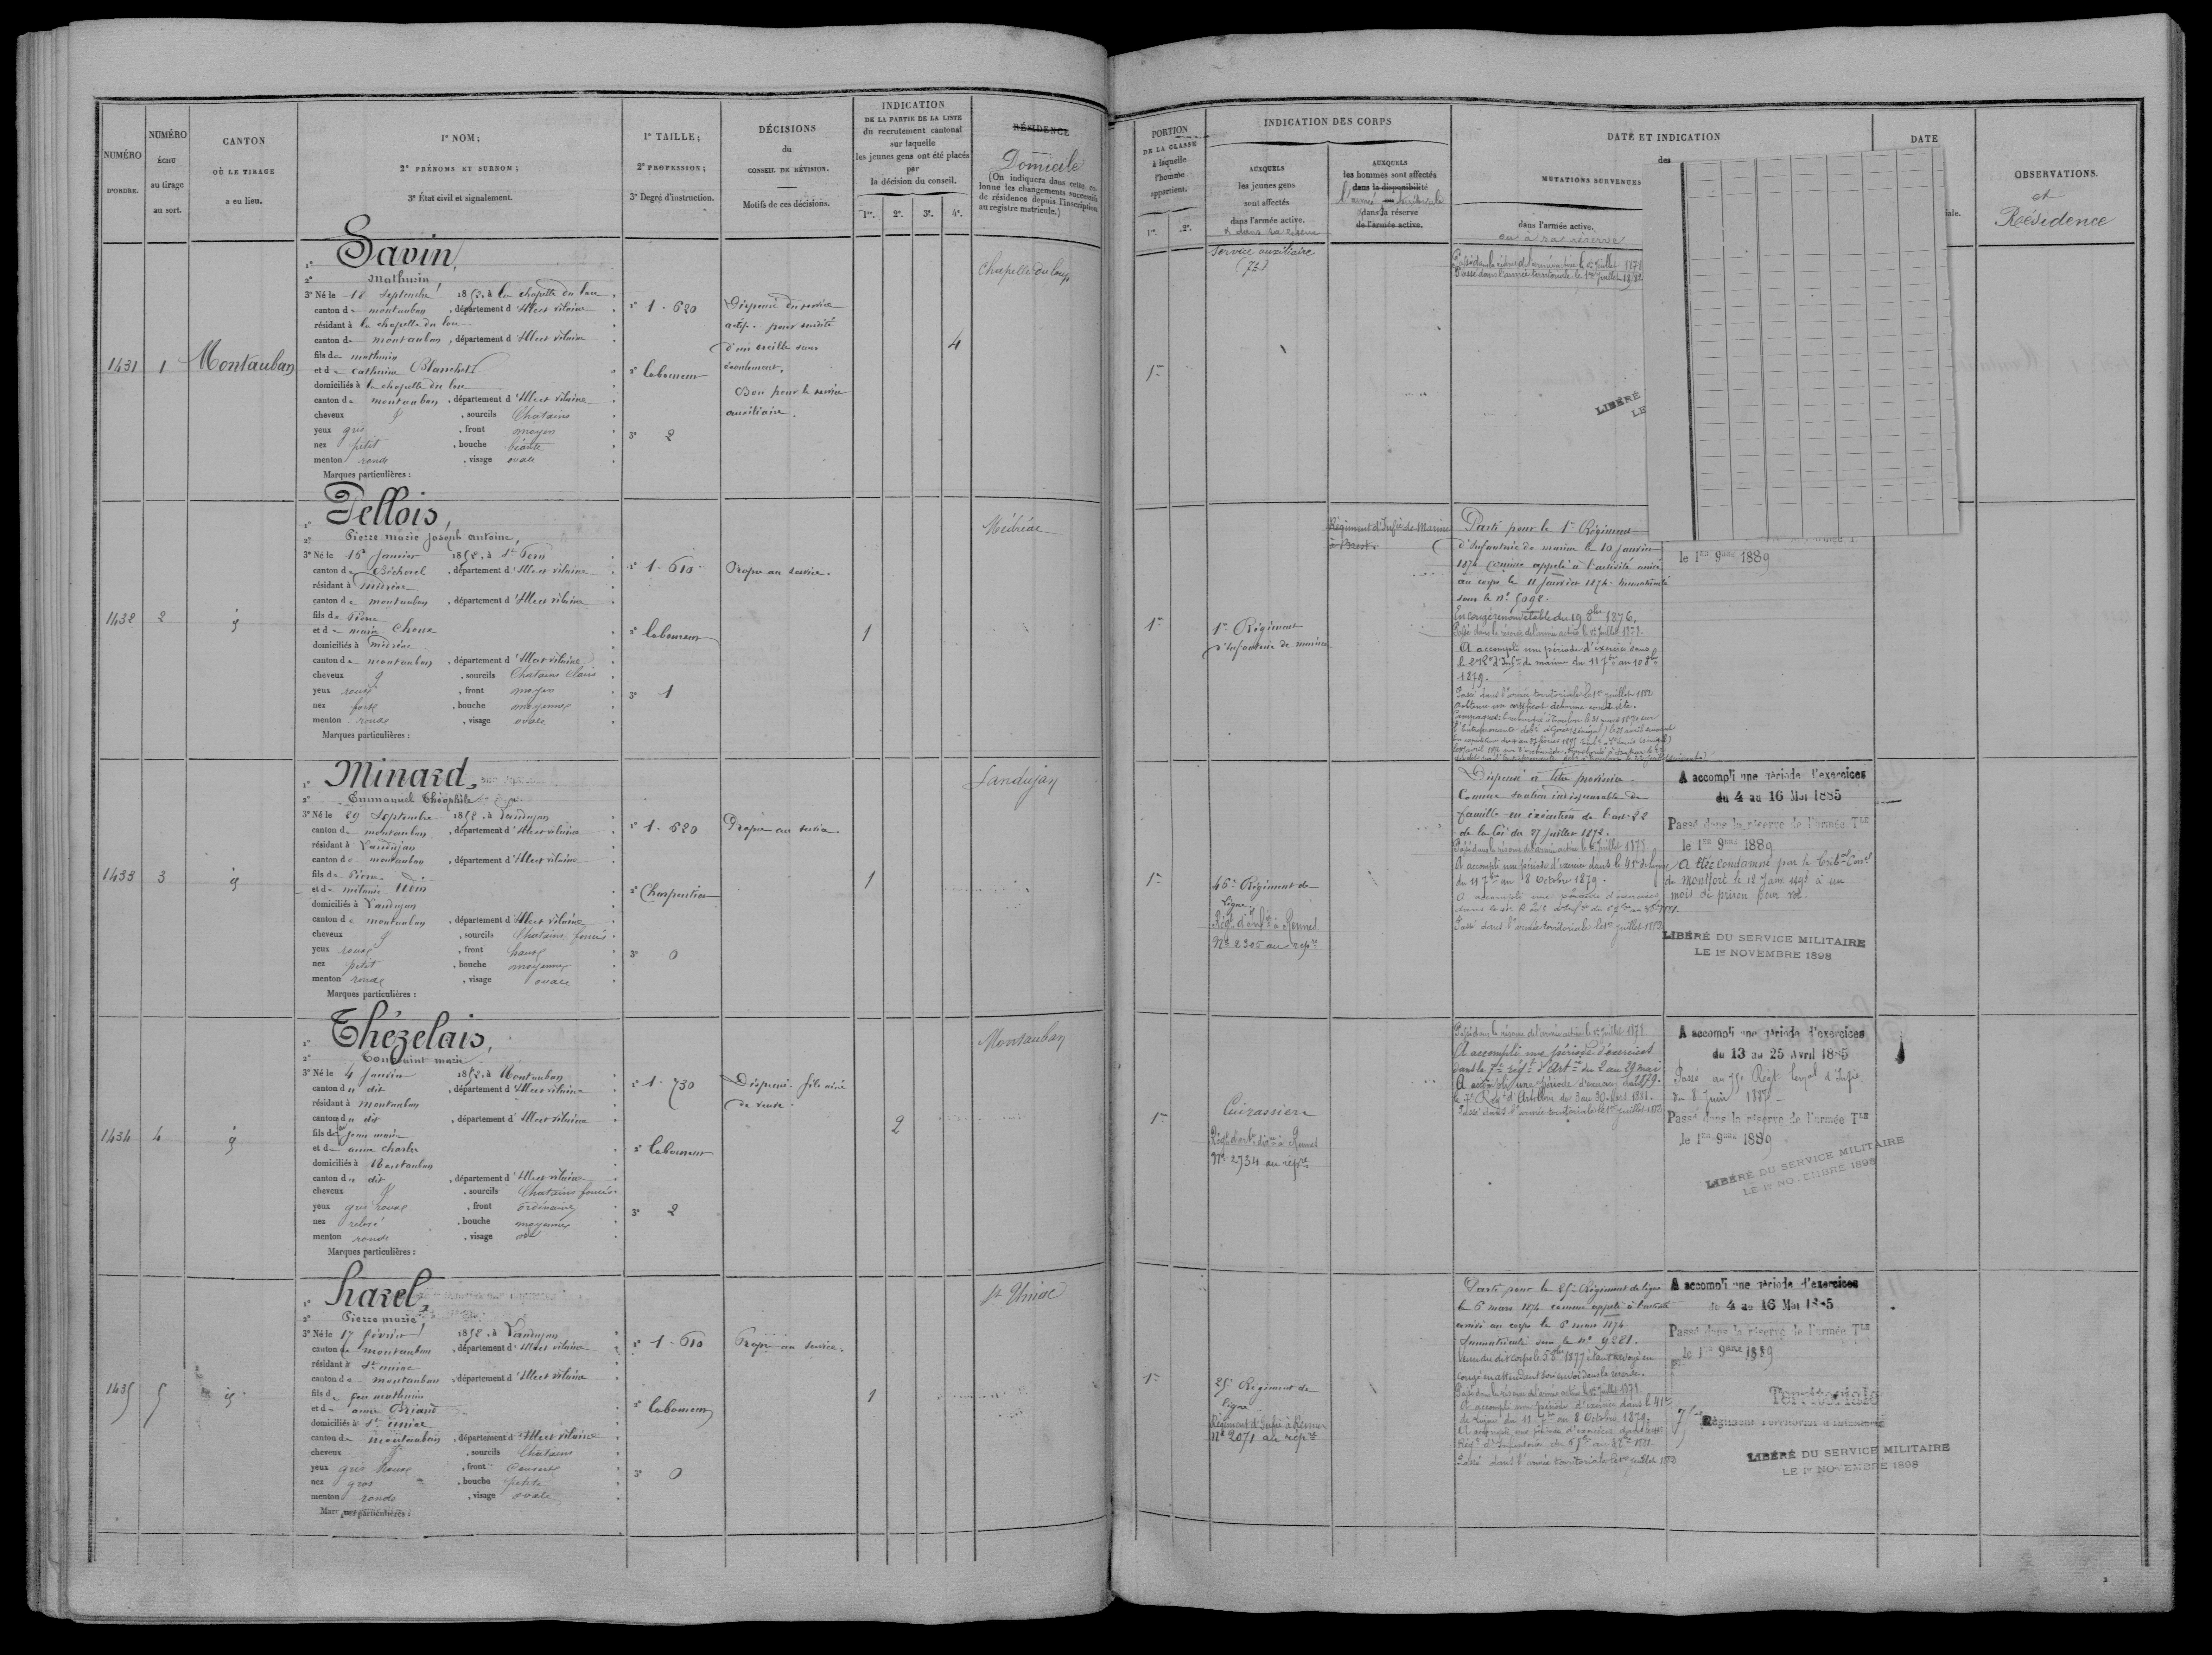 NUMÉRO
D'ORDRE.
NUMÉRO
ÉCHU
au tirage
au sort.
CANTON
OÙ LE TIRAGE
a eu lieu.
1° NOM;
2° PRÉNOMS ET SURNOM;
3° État civil et signalement.
1° TAILLE;
2° PROFESSION;
3° Degré d'instruction.
DÉCISIONS
du
CONSEIL DE RÉVISION.
Motifs de ces décisions.
INDICATION
DE LA PARTIE DE LA LISTE
du recrutement cantonal
sur laquelle
les jeunes gens ont été placés
par
la décision du conseil.
1re. 2e. 3e. 4e.
RÉSIDENCE
Domicile
(On indiquera dans cette co-
lonne les changements successifs
de résidence depuis l'inscription
au registre matricule.)
1431
1
Montauban
1° Savin,
2° Mathurin
3° Né le 18 Septembre 1852, à la chapelle du lou
canton de montauban, département d'Ille et vilaine
résidant à la chapelle du lou
canton de montauban, département d'Ille et vilaine
fils de mathurin
et de catherine Blanchet
domiciliés à la chapelle du lou
canton de montauban, département d'Ille et vilaine
cheveux , sourcils Chatains
yeux gris , front moyen
nez petit , bouche béante
menton rond , visage ovale
Marques particulières :
1° 1.620
2° laboureur
3° 2
Dispensé du service
actif. pour surdité
d'une oreille sans
écoulement.
Bon pour le service
auxiliaire.
4
Chapelle du loup
1432
2
1° Pellois,
2° Pierre marie joseph antoine,
3° Né le 16 janvier 1852, à St Pern
canton de Bécherel , département d'Ille et vilaine
résidant à médréac
canton de montauban , département d'Ille et vilaine
fils de Pierre
et de marie Choux
domiciliés à médréac
canton de montauban , département d'Ille et vilaine
cheveux , sourcils Chatains Clairs
yeux roux , front moyen
nez fort , bouche moyenne
menton rond , visage ovale
Marques particulières :
1° 1.610
2° laboureur
3° 1
Propre au service.
1
Médréac
1433
3
1° Minard,
2° Emmanuel Théophile
3° Né le 29 Septembre 1852, à Landujan
canton de montauban , département d'Ille et vilaine
résidant à Landujan
canton de montauban , département d'Ille et vilaine
fils de Pierre
et de mélanie
domiciliés à Landujan
canton de montauban , département d'Ille et vilaine
cheveux , sourcils Chatains foncés
yeux roux , front haut
nez petit , bouche moyenne
menton rond , visage ovale
Marques particulières :
1° 1.620
2° Charpentier
3° 0
Propre au service.
1
Landujan
1434
4
1° Thézelais,
2° Toussaint marie
3° Né le 4 janvier 1852, à Montauban
canton du dit , département d'Ille et vilaine
résidant à montauban
canton du dit , département d'Ille et vilaine
fils de feu jean marie
et de anne
domiciliés à Montauban
canton du dit , département d'Ille et vilaine
cheveux , sourcils Chatains foncés
yeux gris roux , front ordinaire
nez relevé , bouche moyenne
menton rond , visage
Marques particulières :
1° 1.730
2° laboureur
3° 2
Dispensé. fils aîné
de veuve.
2
Montauban
1435
5
1° harel,
2° Pierre marie
3° Né le 17 février 1852, à Landujan
canton de montauban , département d'Ille et vilaine
résidant à St uniac
canton de montauban , département d'Ille et vilaine
fils de feu mathurin
et de anne Briand
domiciliés à St uniac
canton de montauban , département d'Ille et vilaine
cheveux , sourcils Chatains
yeux gris roux , front couvert
nez gros , bouche petite
menton rond , visage ovale
Marques particulières :
1° 1.610
2° laboureur
3° 0
Propre au service.
1
St Uniac
PORTION
DE LA CLASSE
à laquelle
l'homme
appartient.
1re. 2e.
INDICATION DES CORPS
AUXQUELS
les jeunes gens
sont affectés
dans l'armée active.
& dans sa réserve
AUXQUELS
les hommes sont affectés
dans la disponibilité
l'armée territoriale
dans la réserve
de l'armée active.
DATE ET INDICATION
des
MUTATIONS SURVENUES
dans l'armée active.
ou à sa réserve
DATE
iale.
OBSERVATIONS.
et
Résidence
1re
Service auxiliaire
Passé dans la réserve de l'armée active le 1er juillet 1878
Passé dans l'armée territoriale le 1er juillet 1882
LIBÉRÉ
LE
1re
1er Régiment
d'Infanterie de marine
Régiment d'Infie de Marine
à Brest.
Parti pour le 1er Régiment
d'Infanterie de marine le 10 janvier
1874 comme appelé à l'activité arrivé
au corps le 11 janvier 1874 immatriculé
sous le n° 5092.
En congé renouvelable du 19 8bre 1876.
Passé dans la réserve de l'armée active le 1er juillet 1878.
A accompli une période d'exercices dans
le 2e Rt d'Infie de marine du 11 7bre au 10 8bre
1879.
Passé dans l'armée territoriale le 1er juillet 1882
a obtenu un certificat de bonne conduite.
le 1er 9bre 1889
1re
46e Régiment de
Ligne
Régt d'infie à Rennes
N° 2305 au répre
Dispensé à titre provisoire
Comme soutien indispensable de
famille en exécution de l'art 22
de la loi du 27 juillet 1872.
Passé dans la réserve de l'armée active le 1er juillet 1878.
A accompli une période d'exercices dans le 41e de ligne
du 11 7bre au 8 Octobre 1879.
A accompli une période d'exercices
Passé dans l'armée territoriale le 1er juillet 1882
A accompli une période d'exercices
du 4 au 16 Mai 1885
Passé dans la réserve de l'armée Tle
le 1er 9bre 1889
A été condamné par le tribal Corel
de Montfort le 12 Janv 1892 à un
mois de prison pour vol.
LIBÉRÉ DU SERVICE MILITAIRE
LE 1er NOVEMBRE 1898
1re
Cuirassiers
Régt d'artie à Rennes
N° 2734 au répre
Passé dans la réserve de l'armée active le 1er juillet 1878
A accompli une période d'exercices
dans le 7e régt d'Artie du 2 au 29 mai
1879.
A accompli une période d'exercices dans
le 7e Régt d'Artillerie du 3 au 30 Mars 1881.
Passé dans l'armée territoriale le 1er juillet 1882
A accompli une période d'exercices
du 13 au 25 Avril 1885
Passé dans la réserve de l'armée Tle
le 1er 9bre 1889
LIBÉRÉ DU SERVICE MILITAIRE
LE 1er NOVEMBRE 1898
1re
25e Régiment de
ligne
Régiment d'Infie à Rennes
N° 2071 au répre
Parti pour le 25e Régiment de ligne
le 6 mars 1874 comme appelé à l'activité
arrivé au corps le 6 mars 1874
immatriculé sous le n° 9281.
congé en attendant son envoi dans la réserve.
Passé dans la réserve de l'armée active le 1er juillet 1878
A accompli une période d'exercices dans le 41e
de ligne du 11 7bre au 8 Octobre 1879.
Passé dans l'armée territoriale le 1er juillet 1882
A accompli une période d'exercices
du 4 au 16 Mai 1885
Passé dans la réserve de l'armée Tle
le 1er 9bre 1889
Territoriale
75e Régiment territorial d'infanterie
LIBÉRÉ DU SERVICE MILITAIRE
LE 1er NOVEMBRE 1898